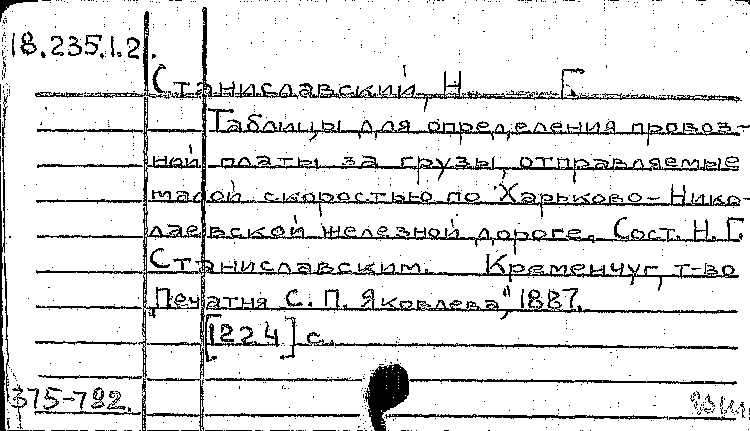 18.235.1.2.
Станиславский, Н. Г.
Таблицы для определения провоз-
ной платы за грузы, отправляемые
малой скоростью по Харьково-Нико-
лаевской железной дороге. Сост. Н. Г.
Станиславским. Кременчуг, т-во
"Печатня С. П. Яковлева", 1887.
[224] с.
375-792.